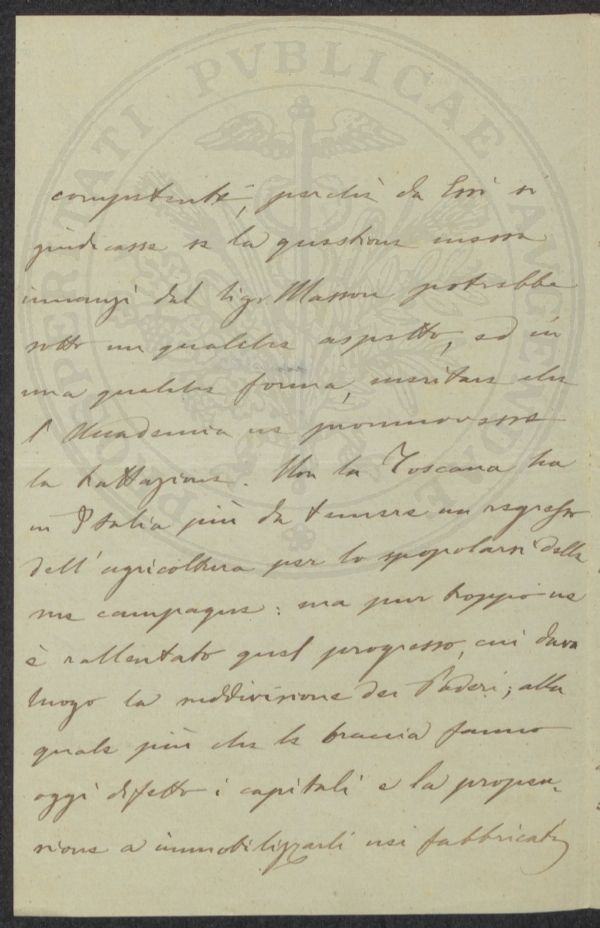 PROSPERITATI PVBLICAE AVGENDAE
competente, perchè da Essi si
giudicasse se la questione messa
innanzi dal Sigr. Masson potrebbe
sotto un qualche aspetto, ed in
una qualche forma, meritare che
l'Accademia ne promuovesse
la trattazione. Non la Toscana ha
in Italia più da temere un regresso
dell'agricoltura per lo spopolarsi delle
sue campagne: ma pur troppo ne
è rallentato quel progresso, cui dava
luogo la suddivisione dei Poderi; alla
quale più che le braccia fanno
oggi difetto i capitali e la propen-
sione a immobilizzarli nei fabbricati,